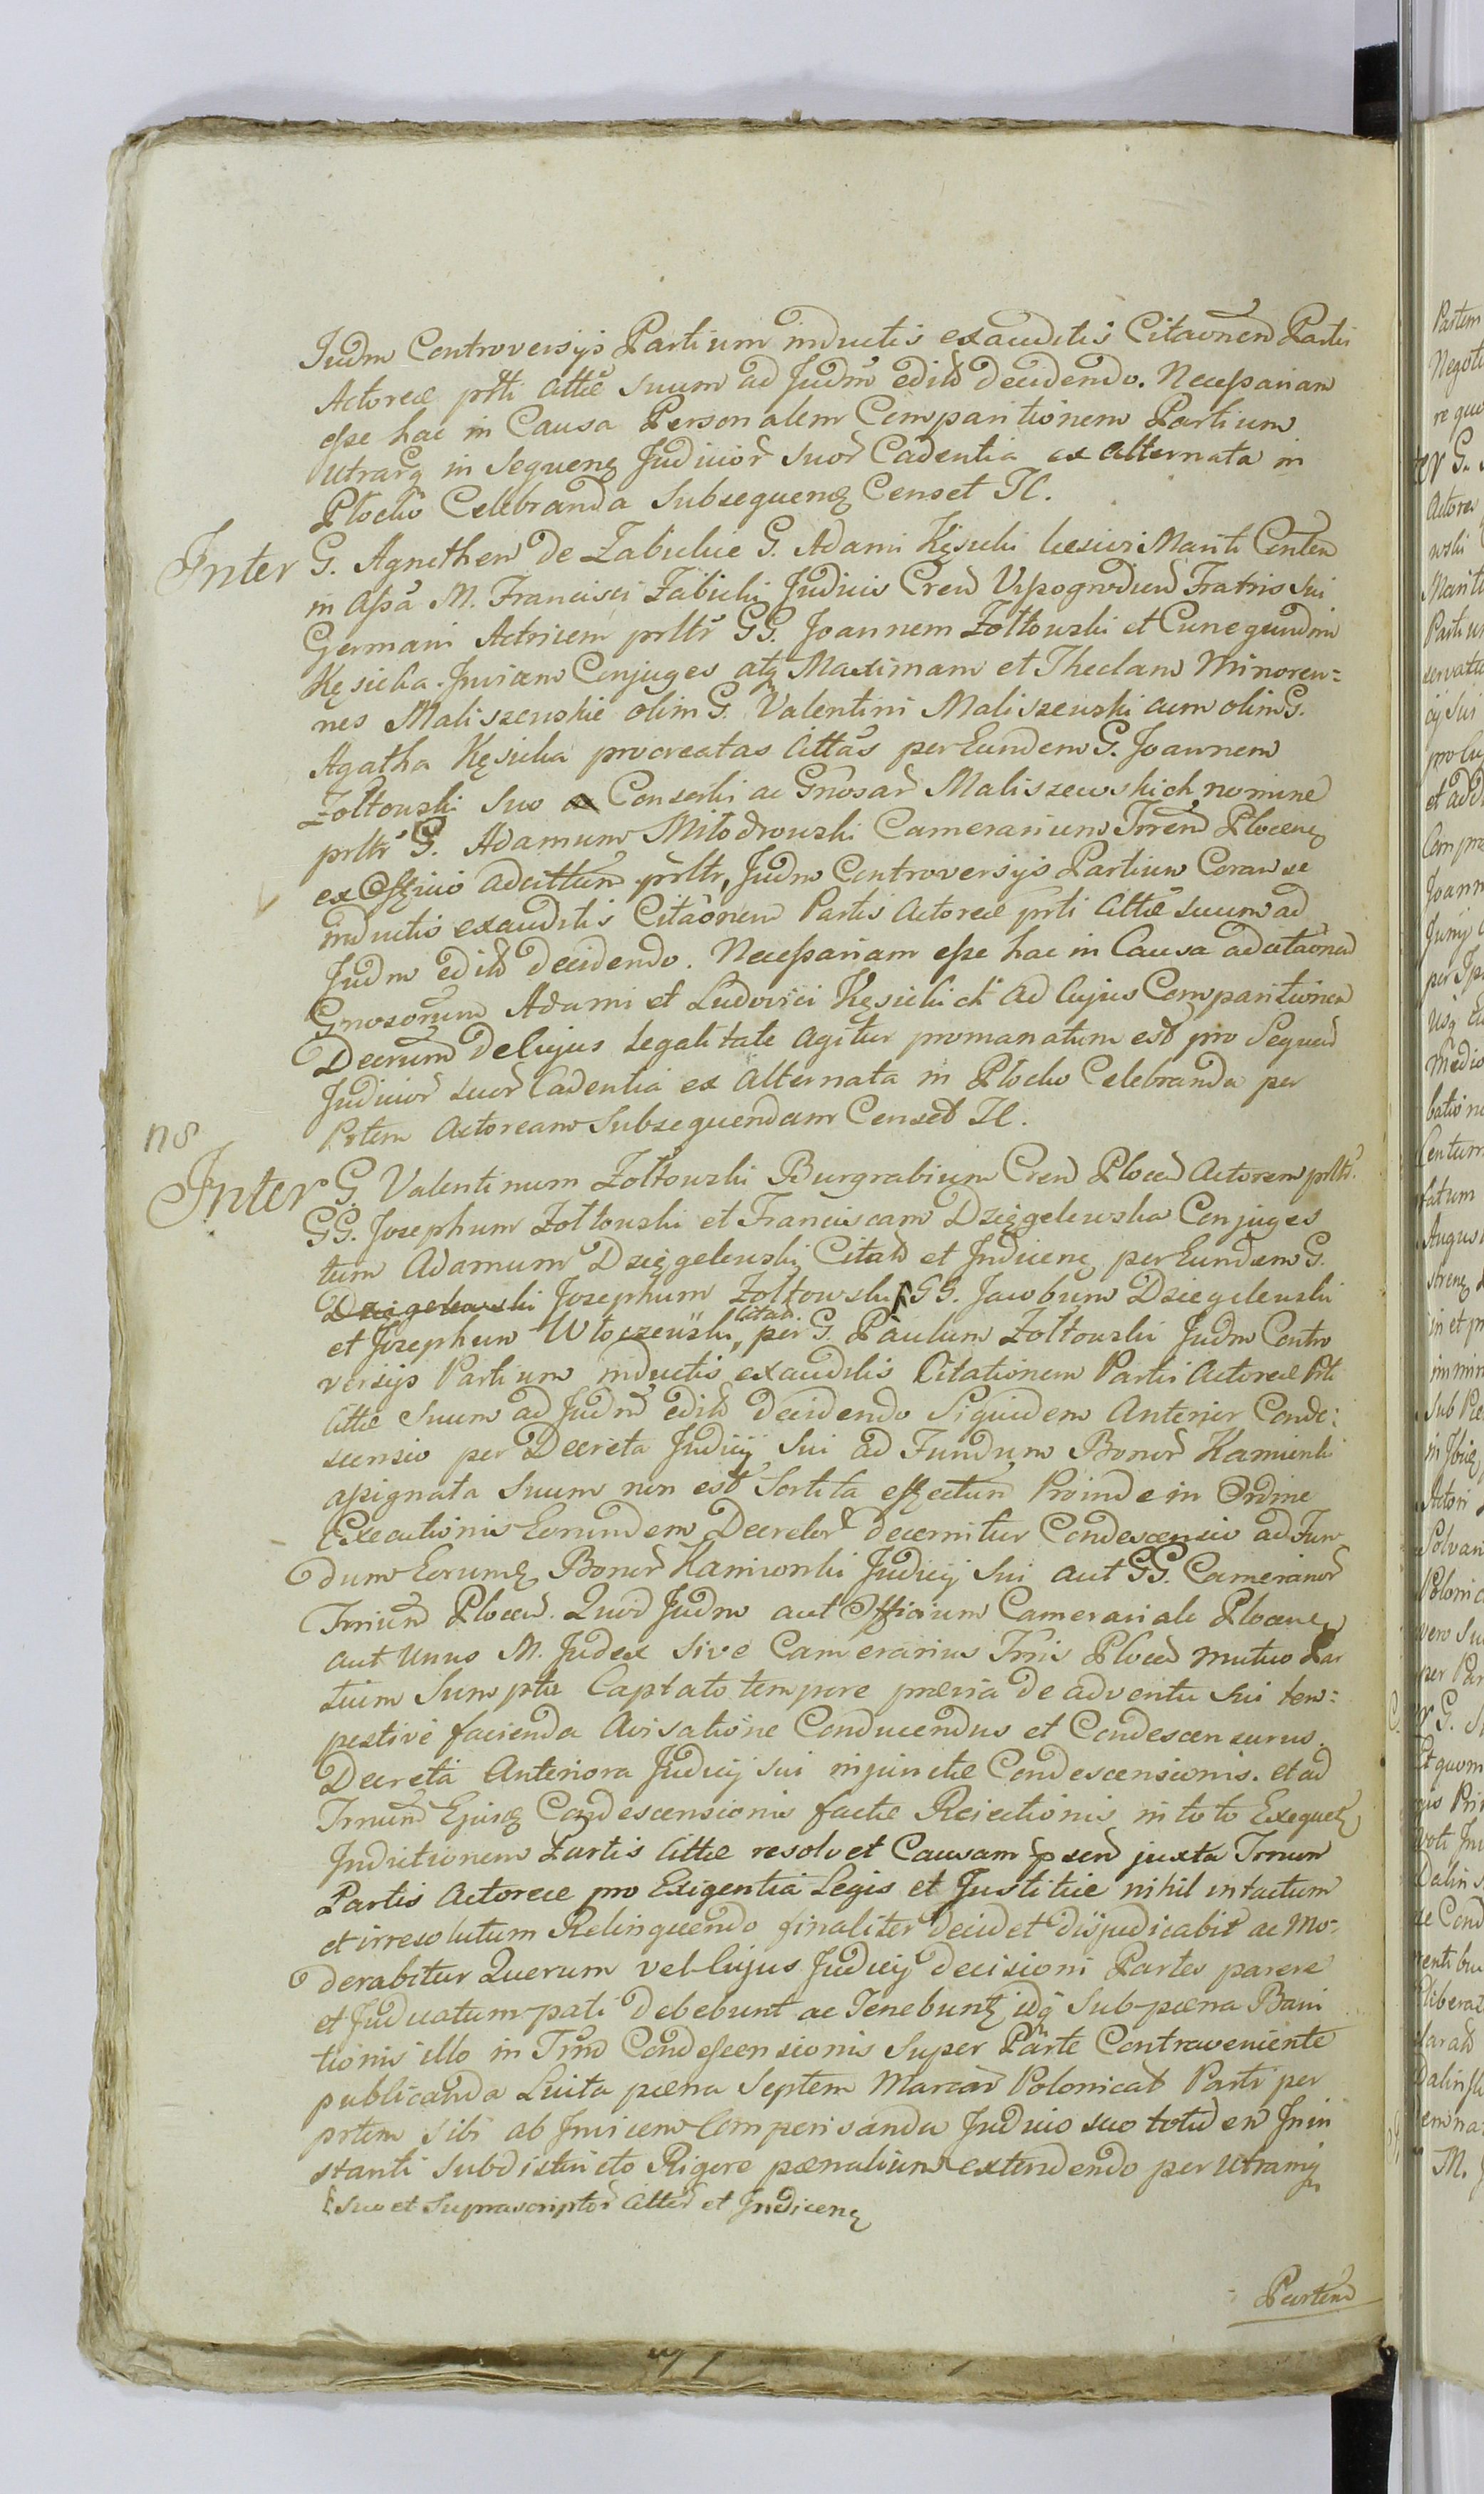 Judm Controversijs Partium inductis exauditis Citaonem Partis
Actoreæ prti Cittæ suum ad Judm edit decidendo. Necessariam
esse hac in Causa Personalem Comparitionem Partium
Utrarq in Sequenq Judicior suor Cadentia ex alternata in
Plocko Celebranda Subsequenq Censet Il.
Inter G. Agnethem de Zabickie G. Adami Kęsicki Mariti Conten
in assa M. Francisci Zabicki Judicis Cren Wyssogrodien Fratris sui
Germani Actricem prltr GG. Joannem Zołtowski et Cunegundim
Kęsicka Invicem Conjuges atq Maximam et Theclam Minoren:
nes Maliszewskie olim G. Valentini Maliszewski cum olim G.
Agatha Kęsicka procreatas Cittas per Eundem G. Joannem
Zołtowski Suo Consorti ac Gnosar Maliszewskich nomine
prltr G. Adamum Miłodrowski Camerarium Trren Plocenq
ex Officio adcittum prltr, Judm Controversijs Partium Coram se
inductis exauditis Citaonem Partis Actoreæ prti Cittæ suum ad
Judm edit decidendo. Necessariam esse hac in Causa adcitaonem
Gnosorum Adami et Ludovici Kęsickich ad Cujus Comparitionem
Decrum de Cujus Legalitate agitur promanatum est pro Sequen
Judicior suor Cadentia ex Alternata in Plocko Celebranda per
Prtem Actoream Subsequendam Censet Il.
n8
Inter G. Valentinum Zołtowski Burgrabium Cren Plocen Actorem prltr.
GG. Josephum Zołtowski et Franciscam Dzięgelewska Conjuges
tum Adamum Dzięgelewski Citat et Indicenq per Eundem G.
Dzięgelewski Josephum Zołtowski GG. Jacobum Dzięgelewski
et Josephum Włoczewski, Citat per G. Paulum Zołtowski Judm Contro
versijs Partium inductis exauditis Citationem Partis Actoreæ Prti
Cittæ Suum ad Judm edit decidendo Siquidem Anterior Conde:
scensio per Decreta Judicij Sui ad Fundum Bonor Kamionki
assignata Suum non est Sortita effectum Proinde in Ordine
Executionis Eorumdem Decretor decernitur Condescensio ad Fun
dum Eorumq Bonor Kamionki Judicij Sui aut GG. Camerarior
Trrium Plocen. Quod Judm aut Officium Camerariale Plocenq
aut Unus M. Judex sive Camerarius Trris Plocen mutuo Par
tium Sumptu Captato tempore prævia de adventu sui tem:
pestive facienda Avisatione Conducendus et Condescensurus.
Decreta Anteriora Judicij sui injunctæ Condescensionis. et ad
Trnum Ejusq Condescensionis factæ Reiectionis in toto Exequetq
Indictionem Partis Cittæ resolvet Causam psen juxta Trnum
Partis Actoreæ pro Exigentia Legis et Justitiæ nihil intactum
et irresolutum Relinquendo finaliter decidet dijudicabit ac Mo:
derabitur Quorum vel Cujus Judicij decisioni Partes parere
et Judicatum pati debebunt ac Tenebuntq idq sub pæna Bani
tionis illo in Trno Condescensionis Super Parte Contraveniente
publicanda Luita pæna Septem Marcar Polonicat Parti per
prtem sibi ab Invicem Compensanda Judicio suo totidem Inin
stanti subdistincto Rigore pænalium extendendo per Utramq
Suo et Suprascriptor Cittor et Indicenq
Partem